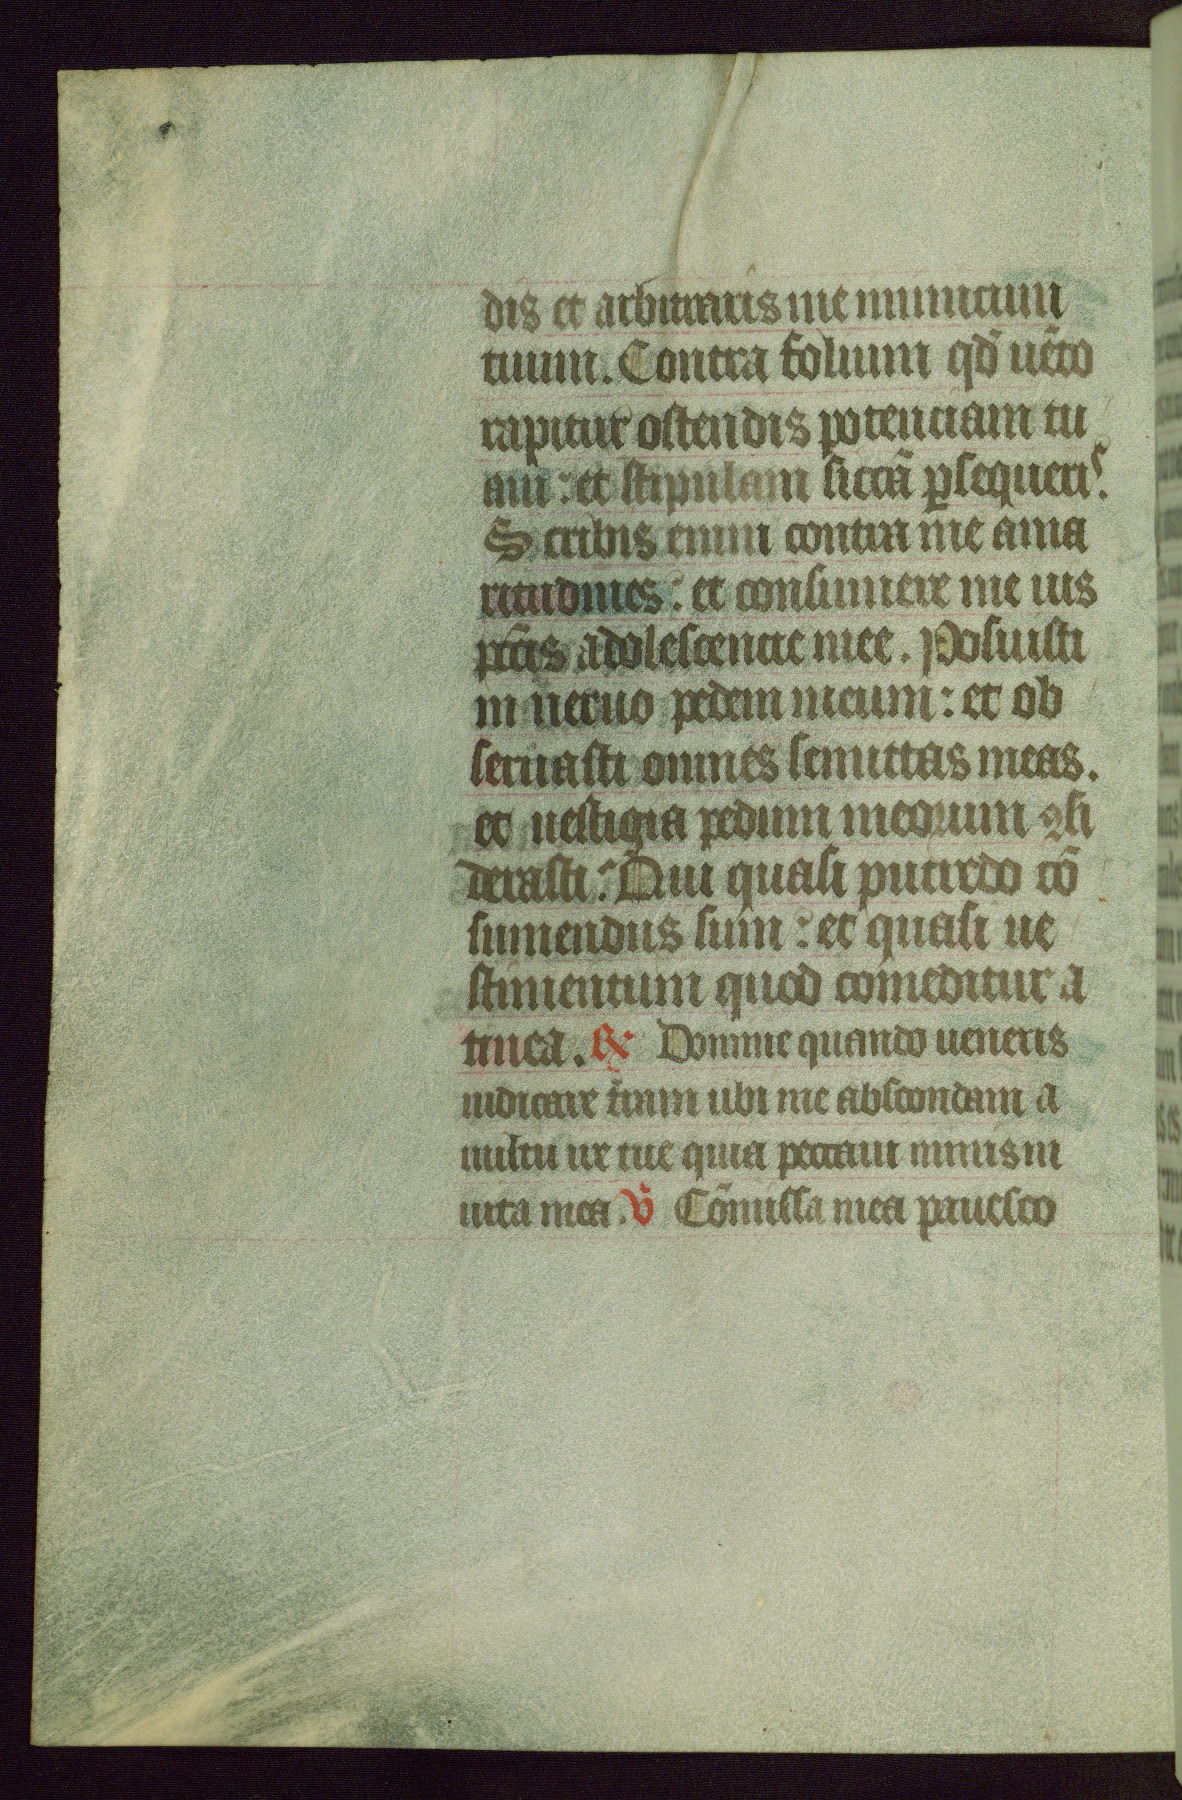 dis et arbitraris me inimicum
tuum. Contra folium qd̄ uēto
rapitur ostendis potenciam tu
am: et stipulam siccā ꝑsequeris.
Scribis enim contra me ama
ritudines: et consumere me uis
pctīs adolescencie mee. Posuisti
in neruo pedem meum: et ob
seruasti omnes semittas meas.
et uestigia pedum meorum ꝯsi
derasti: Qui quasi putredo cō
sumendus sum: et quasi ue
stimentum quod comeditur a
tinea. ℟ Domine quando ueneris
iudicare t̄ram ubi me abscondam a
uultu ire tue quia peccaui nimis in
uita mea. ℣ Cōmissa mea pauesco